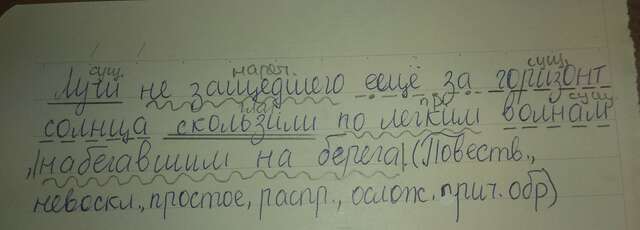 сущ. нареч. сущ.
Лучи не зашедшего ещё за горизонт
глаг. пр. сущ.
солнца скользили по легким волнам
,|набегавшим на берега|.(Повеств.,
невоскл., простое, распр., ослож. прич. обр)